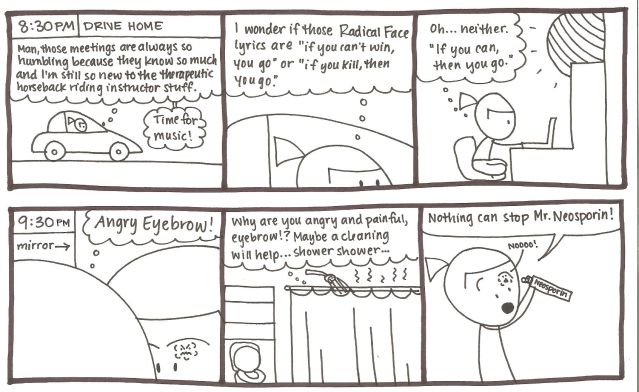 8:30PM DRIVE HOME
Man, those meetings are always so
humbling because they know so much
and I'm still so new to the therapeutic
horseback riding instructor stuff.
Time for
music!
I wonder if those Radical Face
lyrics are "if you can't win,
you go" or "if you kill, then
you go."
Oh... neither.
"If you can,
then you go."
9:30PM
mirror→
Angry Eyebrow!
Why are you angry and painful,
eyebrow!? Maybe a cleaning
will help... shower shower...
Nothing can stop Mr. Neosporin!
Noooo!
Neosporin